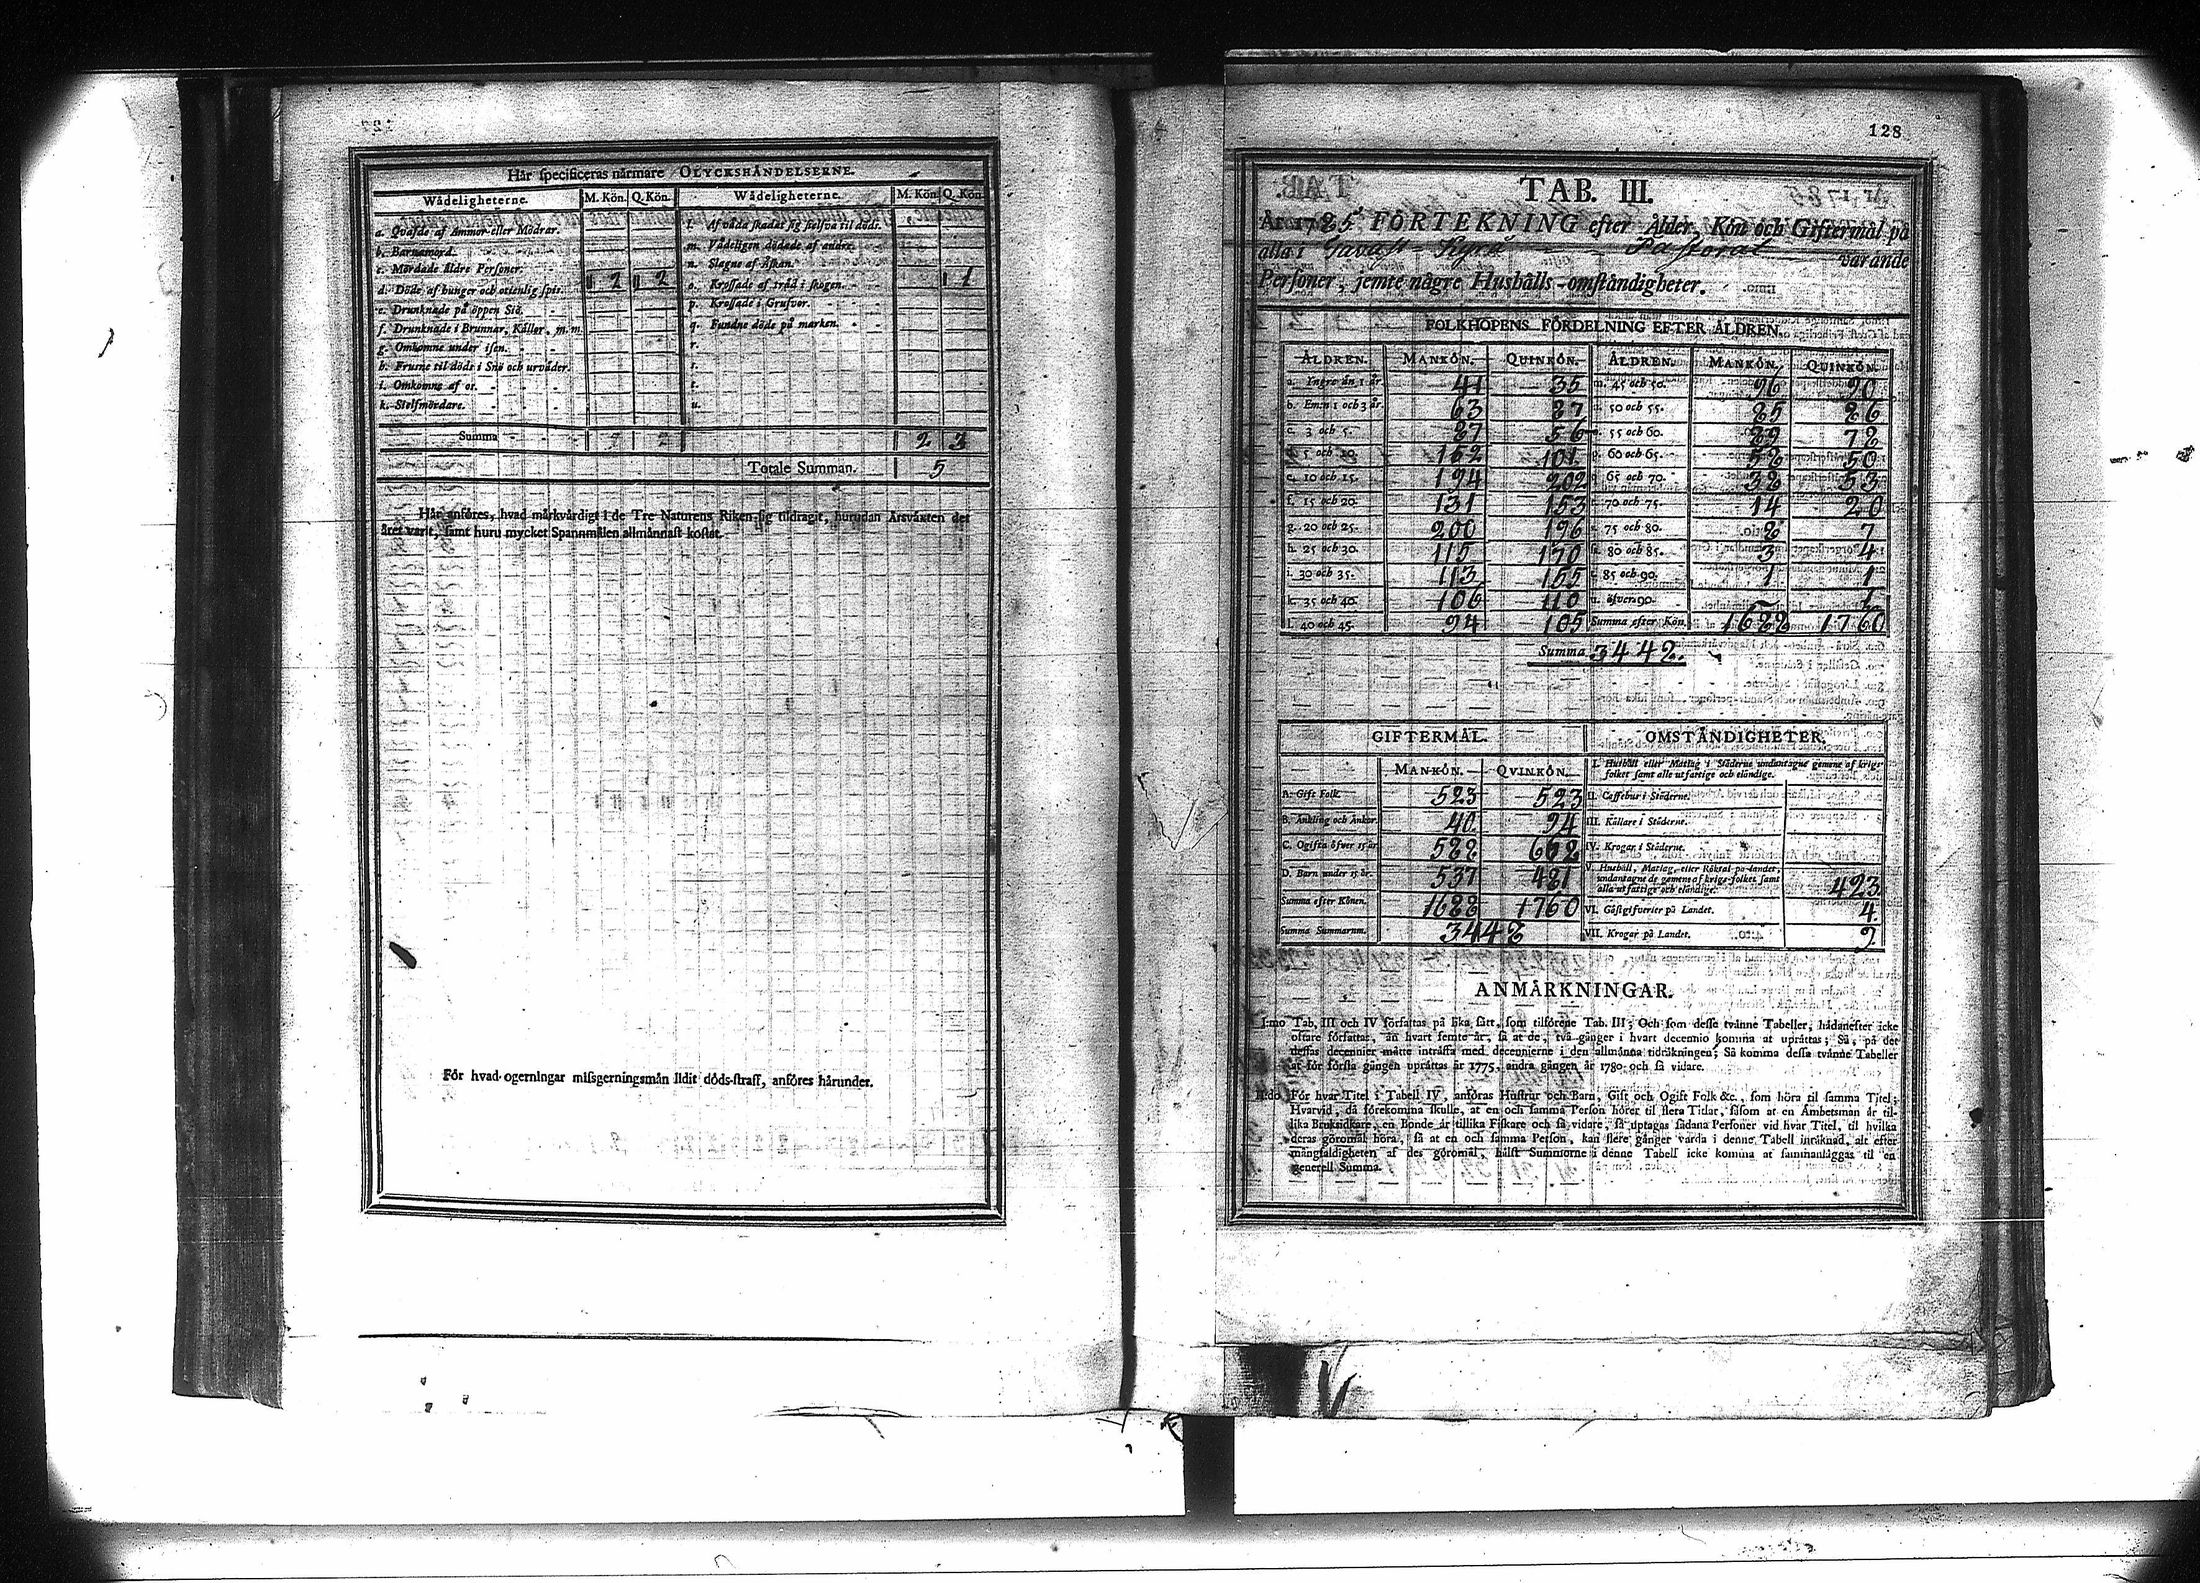 Här specificeras närmare OLYCKSHÅNDELSERNE.
Wådeligheterne. M. Kön. Q. Kön. Wådeligheterne. M. Kön. Q. Kön.
a. Qväfde af Ammor eller Mödrar. l. Af våda skadat sig sielfva til döds.
b. Barnamord. m. Vådeligen dödade af andre.
c. Mördade äldre Personer. n. Slagne af Åskan.
d. Döde af hunger och otienlig spis. 2 2 o. Krossade af träd i skogen. 1
e. Drunknade på öppen Siö. p. Krossade i Grufvor.
f. Drunknade i Brunnar, Källor, m. m. q. Fundne döde på marken.
g. Omkomne under isen. r.
h. Frusne til döds i Snö och urväder. s.
i. Omkomne af os. t.
k. Sielfmördare. u.
Summa 2 2 2 3
Totale Summan. 5
Här anföres, hvad märkvärdigt i de Tre Naturens Riken sig tildragit, hurudan Årsväxten det
året varit, samt huru mycket Spannmålen allmännast kostat.
För hvad ogerningar missgerningsmän lidit döds-straff, anföres härunder.
128
TAB. III.
År 1785 FÖRTEKNING efter Ålder, Kön och Giftermål på
alla i Tavast-Kyrö Pastorat varande
Personer, jemte någre Hushålls-omständigheter.
FOLKHOPENS FÖRDELNING EFTER ÅLDREN.
ÅLDREN. MANKÖN. QUINKÖN. ÅLDREN. MANKÖN. QUINKÖN.
a. Yngre än 1 år. 41 35 m. 45 och 50. 96 90
b. Em:n 1 och 3 år. 63 87 n. 50 och 55. 85 86
c. 3 och 5. 87 56 o. 55 och 60. 89 72
d. 5 och 10. 152 101 p. 60 och 65. 52 50
e. 10 och 15. 194 202 q. 65 och 70. 38 53
f. 15 och 20. 131 153 r. 70 och 75. 14 20
g. 20 och 25. 200 196 s. 75 och 80. 8 7
h. 25 och 30. 115 170 80 och 85. 3 4
i. 30 och 35. 113 155 85 och 90. 1 1
k. 35 och 40. 106 110 u. öfver 90. 1
l. 40 och 45. 94 105 Summa efter Kön. 1682 1760
Summa 3442.
GIFTERMÅL. OMSTÅNDIGHETER.
MANKÖN. QVINKÖN. I. Hushåll eller Matlag i Städerne undantagne gemene af krigs-
folket samt alle utfattige och eländige.
A. Gift Folk 523 523 II. Caffehus i Städerne.
B. Änkling och Änkor. 40 94 III. Källare i Städerne.
C. Ogifta öfver 15 år 582 662 IV. Krogar i Städerne.
D. Barn under 15 år. 537 481 V. Hushåll, Matlag, eller Röktal på landet,
undantagne de gemene af krigs-folket samt
alla utfattige och eländige. 423
Summa efter Könen. 1682 1760 VI. Gästgifverier på Landet. 4.
Summa Summarum. 3442 VII. Krogar på Landet. 2.
ANMÅRKNINGAR.
I:mo Tab. III och IV författas på lika sätt, som tilförene Tab. III; Och som desse tvänne Tabeller, hädanefter icke
oftare författas, än hvart femte år, så at de, två gånger i hvart decennio komma at uprättas; Så, på det
dessas decennier måtte inträffa med decennierne i den allmänna tidräkningen; Så komma dessa tvänne Tabeller
at för första gången uprättas år 1775, andra gången år 1780 och så vidare.
II:do För hvar Titel i Tabell IV, anföras Hustrur och Barn, Gift och Ogift Folk &c., som höra til samma Titel;
Hvarvid, då förekomma skulle, at en och samma Person hörer til flera Titlar, såsom at en Ambetsman är til-
lika Bruksidkare, en Bonde är tillika Fiskare och så vidare, så uptagas sådana Personer vid hvar Titel, til hvilka
deras göromål höra, så at en och samma Person, kan flere gånger varda i denne Tabell inräknad, alt efter
mångfaldigheten af des göromål, hälst Summorne i denne Tabell icke komma at sammanläggas til en
generell Summa.